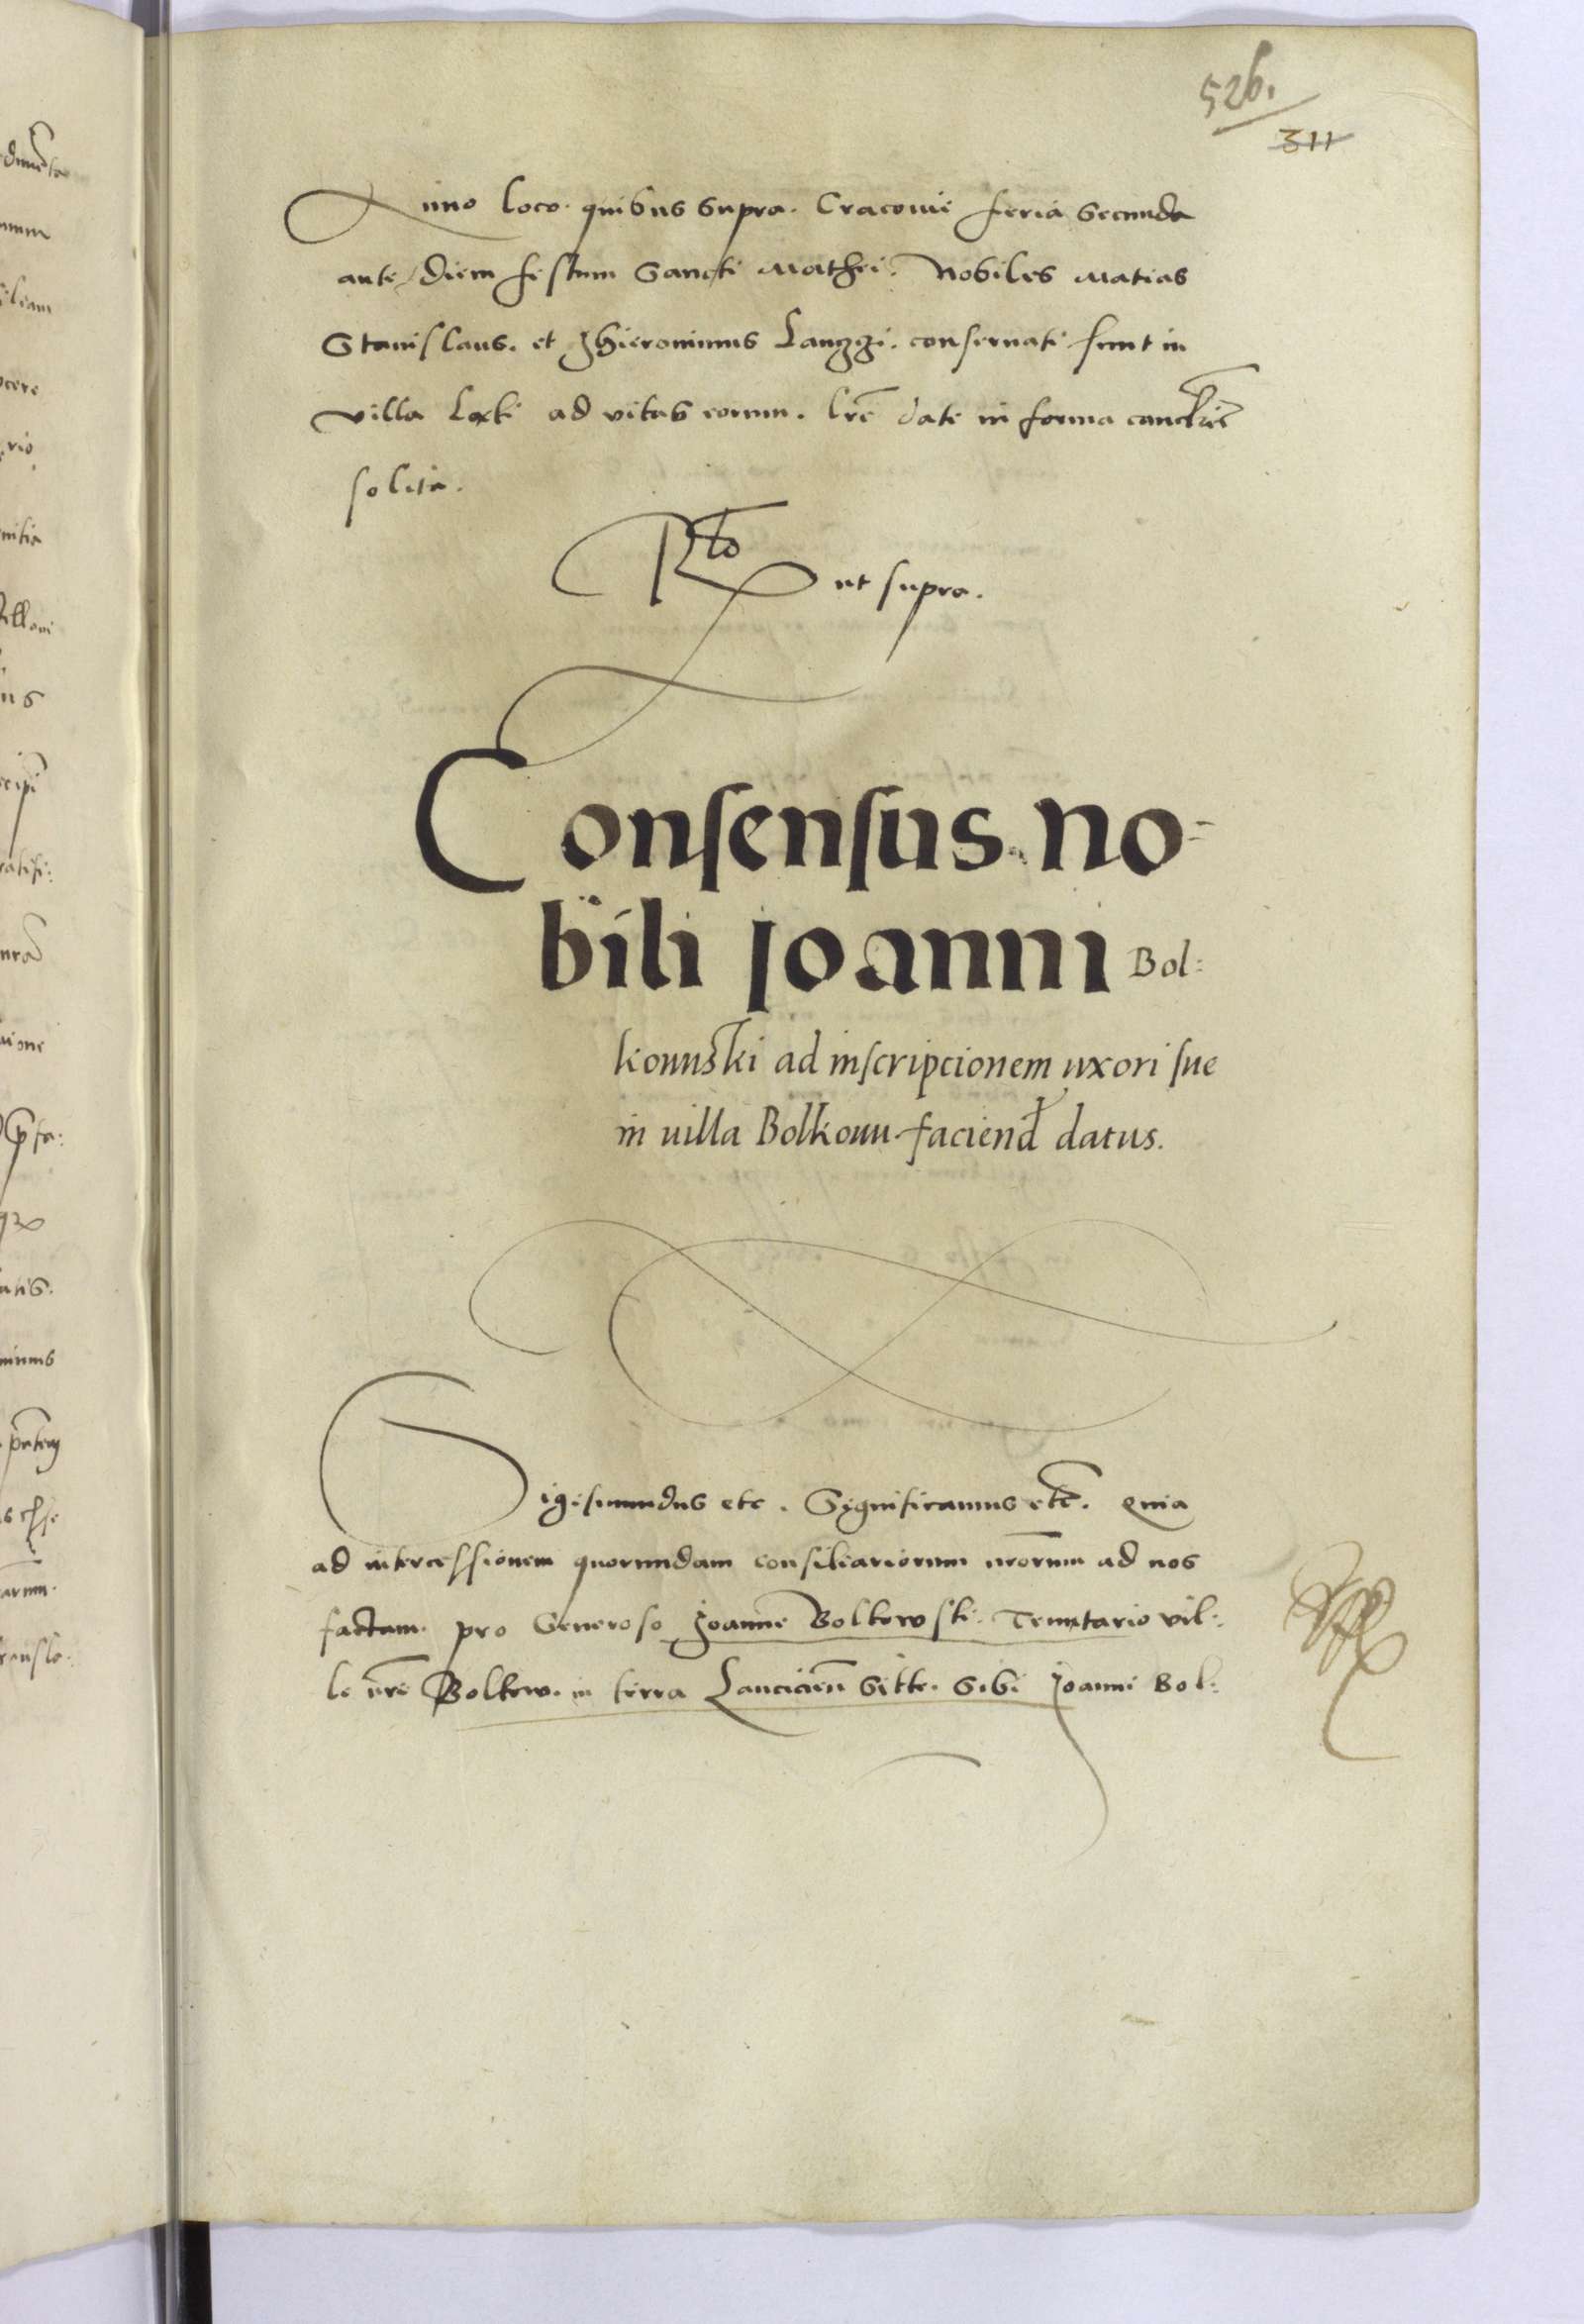 526.
311
Anno loco quibus supra. Cracovie feria Secunda
ante diem festum Sancti Mathei. Nobiles Matias
Stanislaus. et Jhieronimus Langgi. conservati sunt in
villa Lexki ad vitas eorum. lrē date in forma
solita.
Rto ut supra.
Consensus no=
bili Joanni Bol=
kouuski ad inscripcionem uxori sue
in uilla Bolkouu faciend datus.
Sigismundus etc. Significamus etc. quia
ad intercessionem quorundam consiliariorum nrorum ad nos
factam pro Generoso Joanne Bolkowski Tenutario vil=
le nrē Bolkow in terra Lancicien sitte. Sibi Joanni Bol=